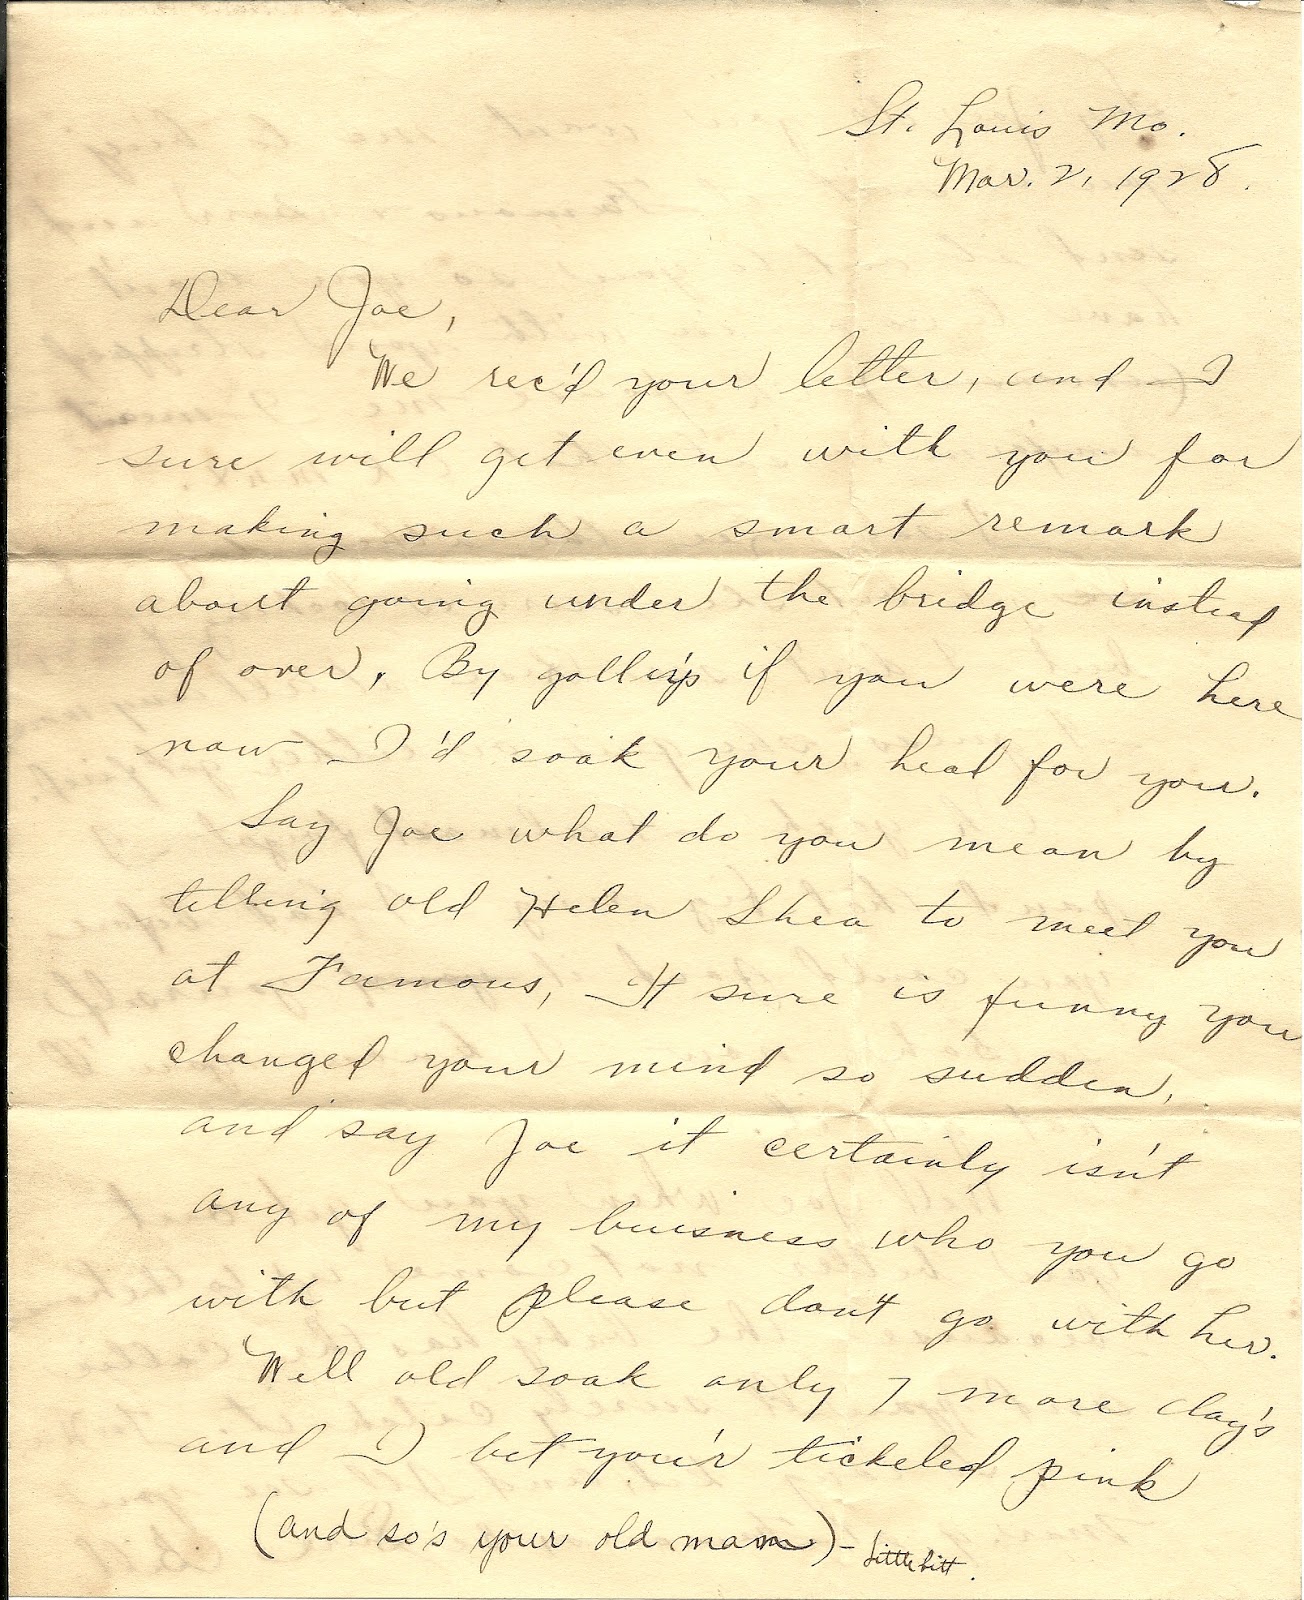 St. Louis Mo.
Mar. 2, 1928.
Dear Joe,
We rec'd your letter, and I
sure will get even with you for
making such a smart remark
about going under the bridge instead
of over. By golly's if you were here
now I'd soak your head for you.
Say Joe what do you mean by
telling old Helen Shea to meet you
at Famous, It sure is funny you
changed your mind so sudden,
and say Joe it certainly isn't
any of my buisness who you go
with but please don't go with her.
Well old soak only 7 more day's
and I bet you'r tickeled pink
(and so's your old mam) - Little bitt.